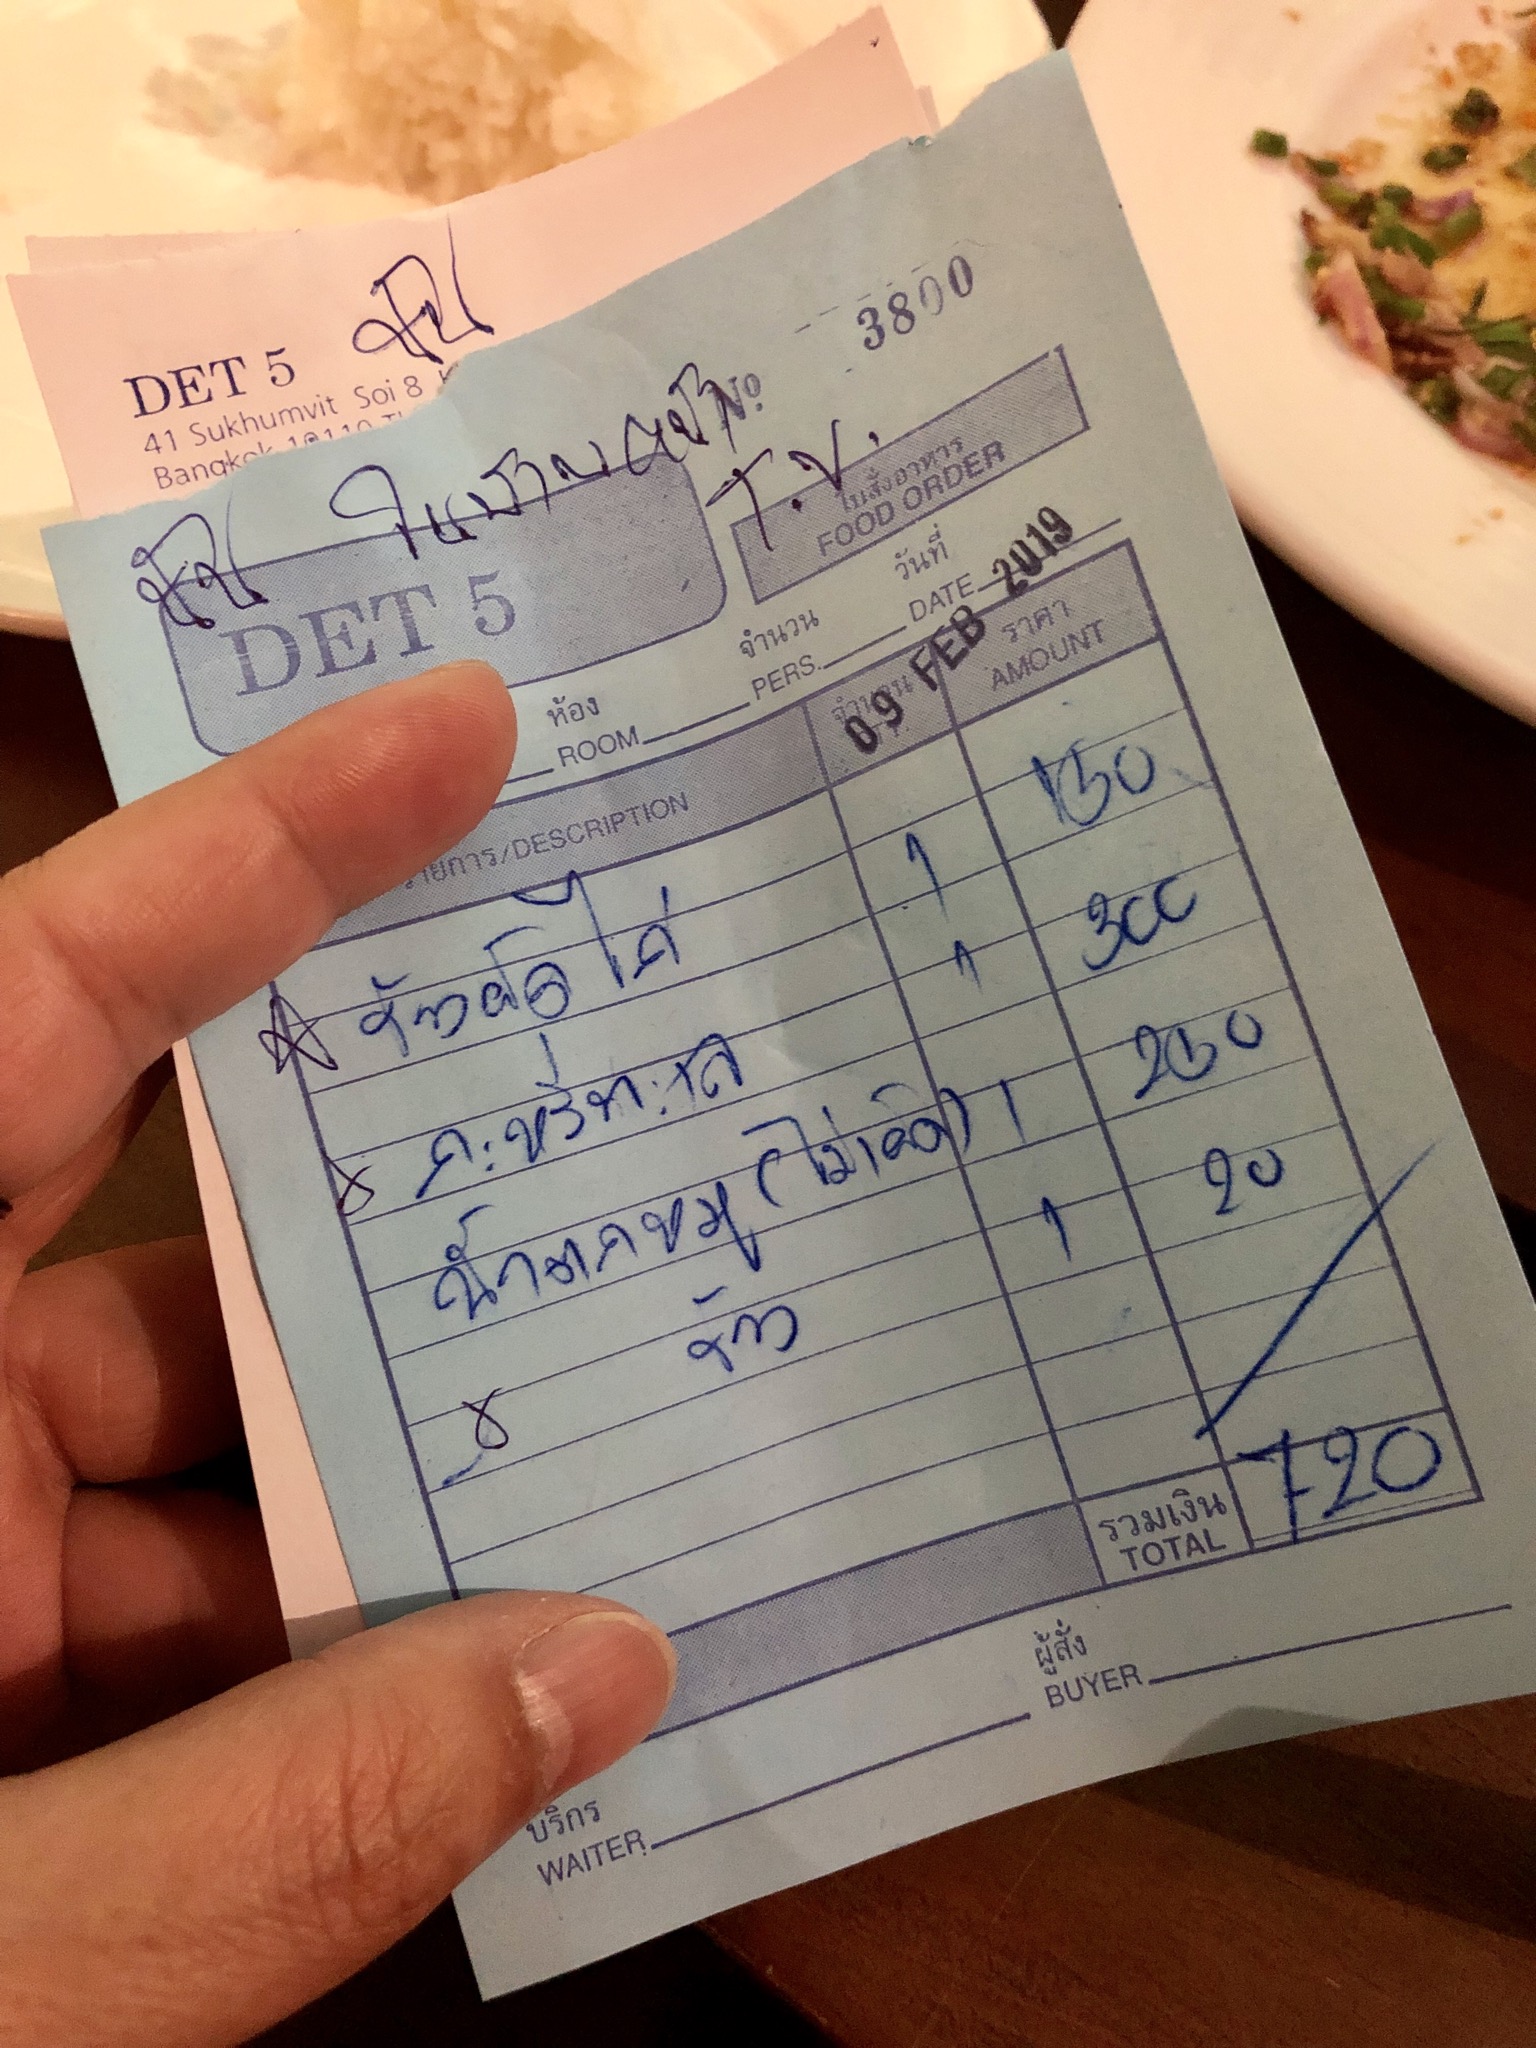 DET 5
41 Sukhumvit Soi 8
Bangkok 10110
No 3800
DET 5
ใบสั่งอาหาร
FOOD ORDER
วันที่
DATE 09 FEB 2019
จำนวน
PERS.
ห้อง
ROOM
รายการ/DESCRIPTION จำนวน ราคา
AMOUNT
ข้าวผัดไก่ 1 150
กะหรี่ทะเล 1 300
น้ำตกหมู (ไม่เผ็ด) 1 250
ข้าว 1 20
รวมเงิน
TOTAL 720
ผู้สั่ง
BUYER
บริกร
WAITER